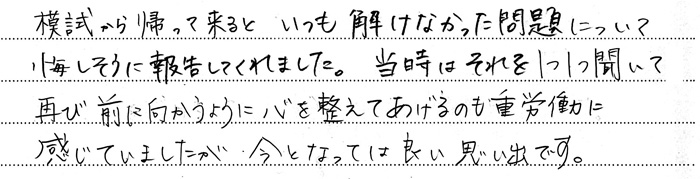 模試から帰って来ると いつも 解けなかった問題について
悔しそうに報告してくれました。 当時は それを1つ1つ聞いて
再び 前に向かうように 心を整えてあげるのも重労働に
感じていましたが 今となっては 良い思い出です。